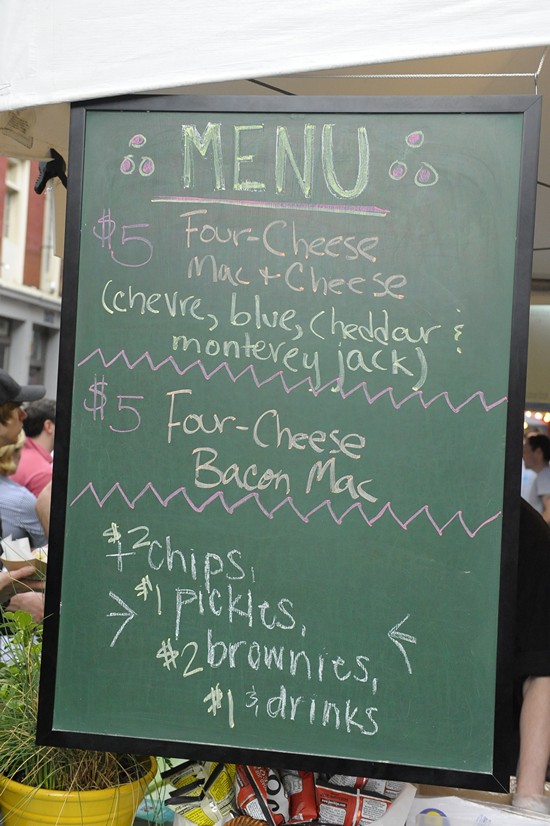 MENU
$5 Four-Cheese
Mac + Cheese
(chevre, blue, cheddar &
monterey jack)
$5 Four-Cheese
Bacon Mac
+ $2 chips,
$1 pickles,
$2 brownies,
$1 & drinks